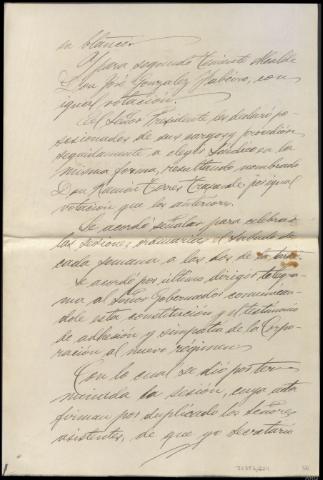 en blanco.
Y para segundo Teniente Alcalde
Don José Gonzalez Habeiro, con
igual votación.
El Señor Presidente les declaró po-
sesionados de sus cargos y procedióse
seguidamente a elegir Síndico en la
misma forma, resultando nombrado
Don Ramón Torres por igual
votación que los anteriores.
Se acordó señalar para celebrar
las sesiones ordinarias el Sábado de
cada semana a las dos de la tarde.
Se acordó por último dirigir telegra-
ma al Señor Gobernador comunican-
dole esta constitución y el testimonio
de adhesión y simpatia de la Corpo-
ración al nuevo régimen.
Con lo cual se dió por ter-
minada la sesión, cuya acta
firman por duplicado los Señores
asistentes, de que yo Secretario